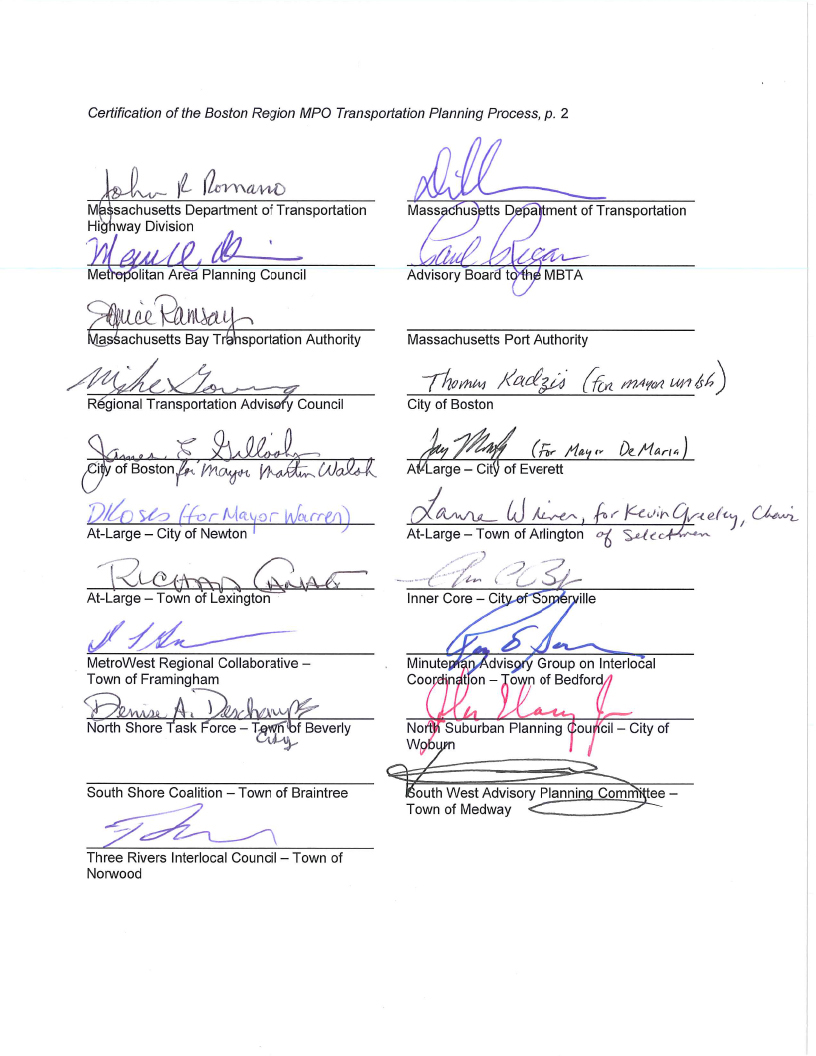 Certification of the Boston Region MPO Transportation Planning Process, p. 2
John R Romano
Massachusetts Department of Transportation
Highway Division
Massachusetts Department of Transportation
Metropolitan Area Planning Council
Paul Regan
Advisory Board to the MBTA
Janice Ramsay
Massachusetts Bay Transportation Authority
Massachusetts Port Authority
Regional Transportation Advisory Council
Thomas Kadzis (for mayor
City of Boston
James E. Gillooly
City of Boston for Mayor Martin Walsh
Jay (For Mayor DeMaria)
At-Large – City of Everett
DKoses (for Mayor Warren)
At-Large – City of Newton
Laura Wiener, for Kevin Greeley, Chair
At-Large – Town of Arlington of Selectmen
Richard
At-Large – Town of Lexington
Inner Core – City of Somerville
MetroWest Regional Collaborative –
Town of Framingham
Minuteman Advisory Group on Interlocal
Coordination – Town of Bedford
Denise A. Deschamps
North Shore Task Force – Town of Beverly
City
North Suburban Planning Council – City of
Woburn
South Shore Coalition – Town of Braintree
South West Advisory Planning Committee –
Town of Medway
Three Rivers Interlocal Council – Town of
Norwood